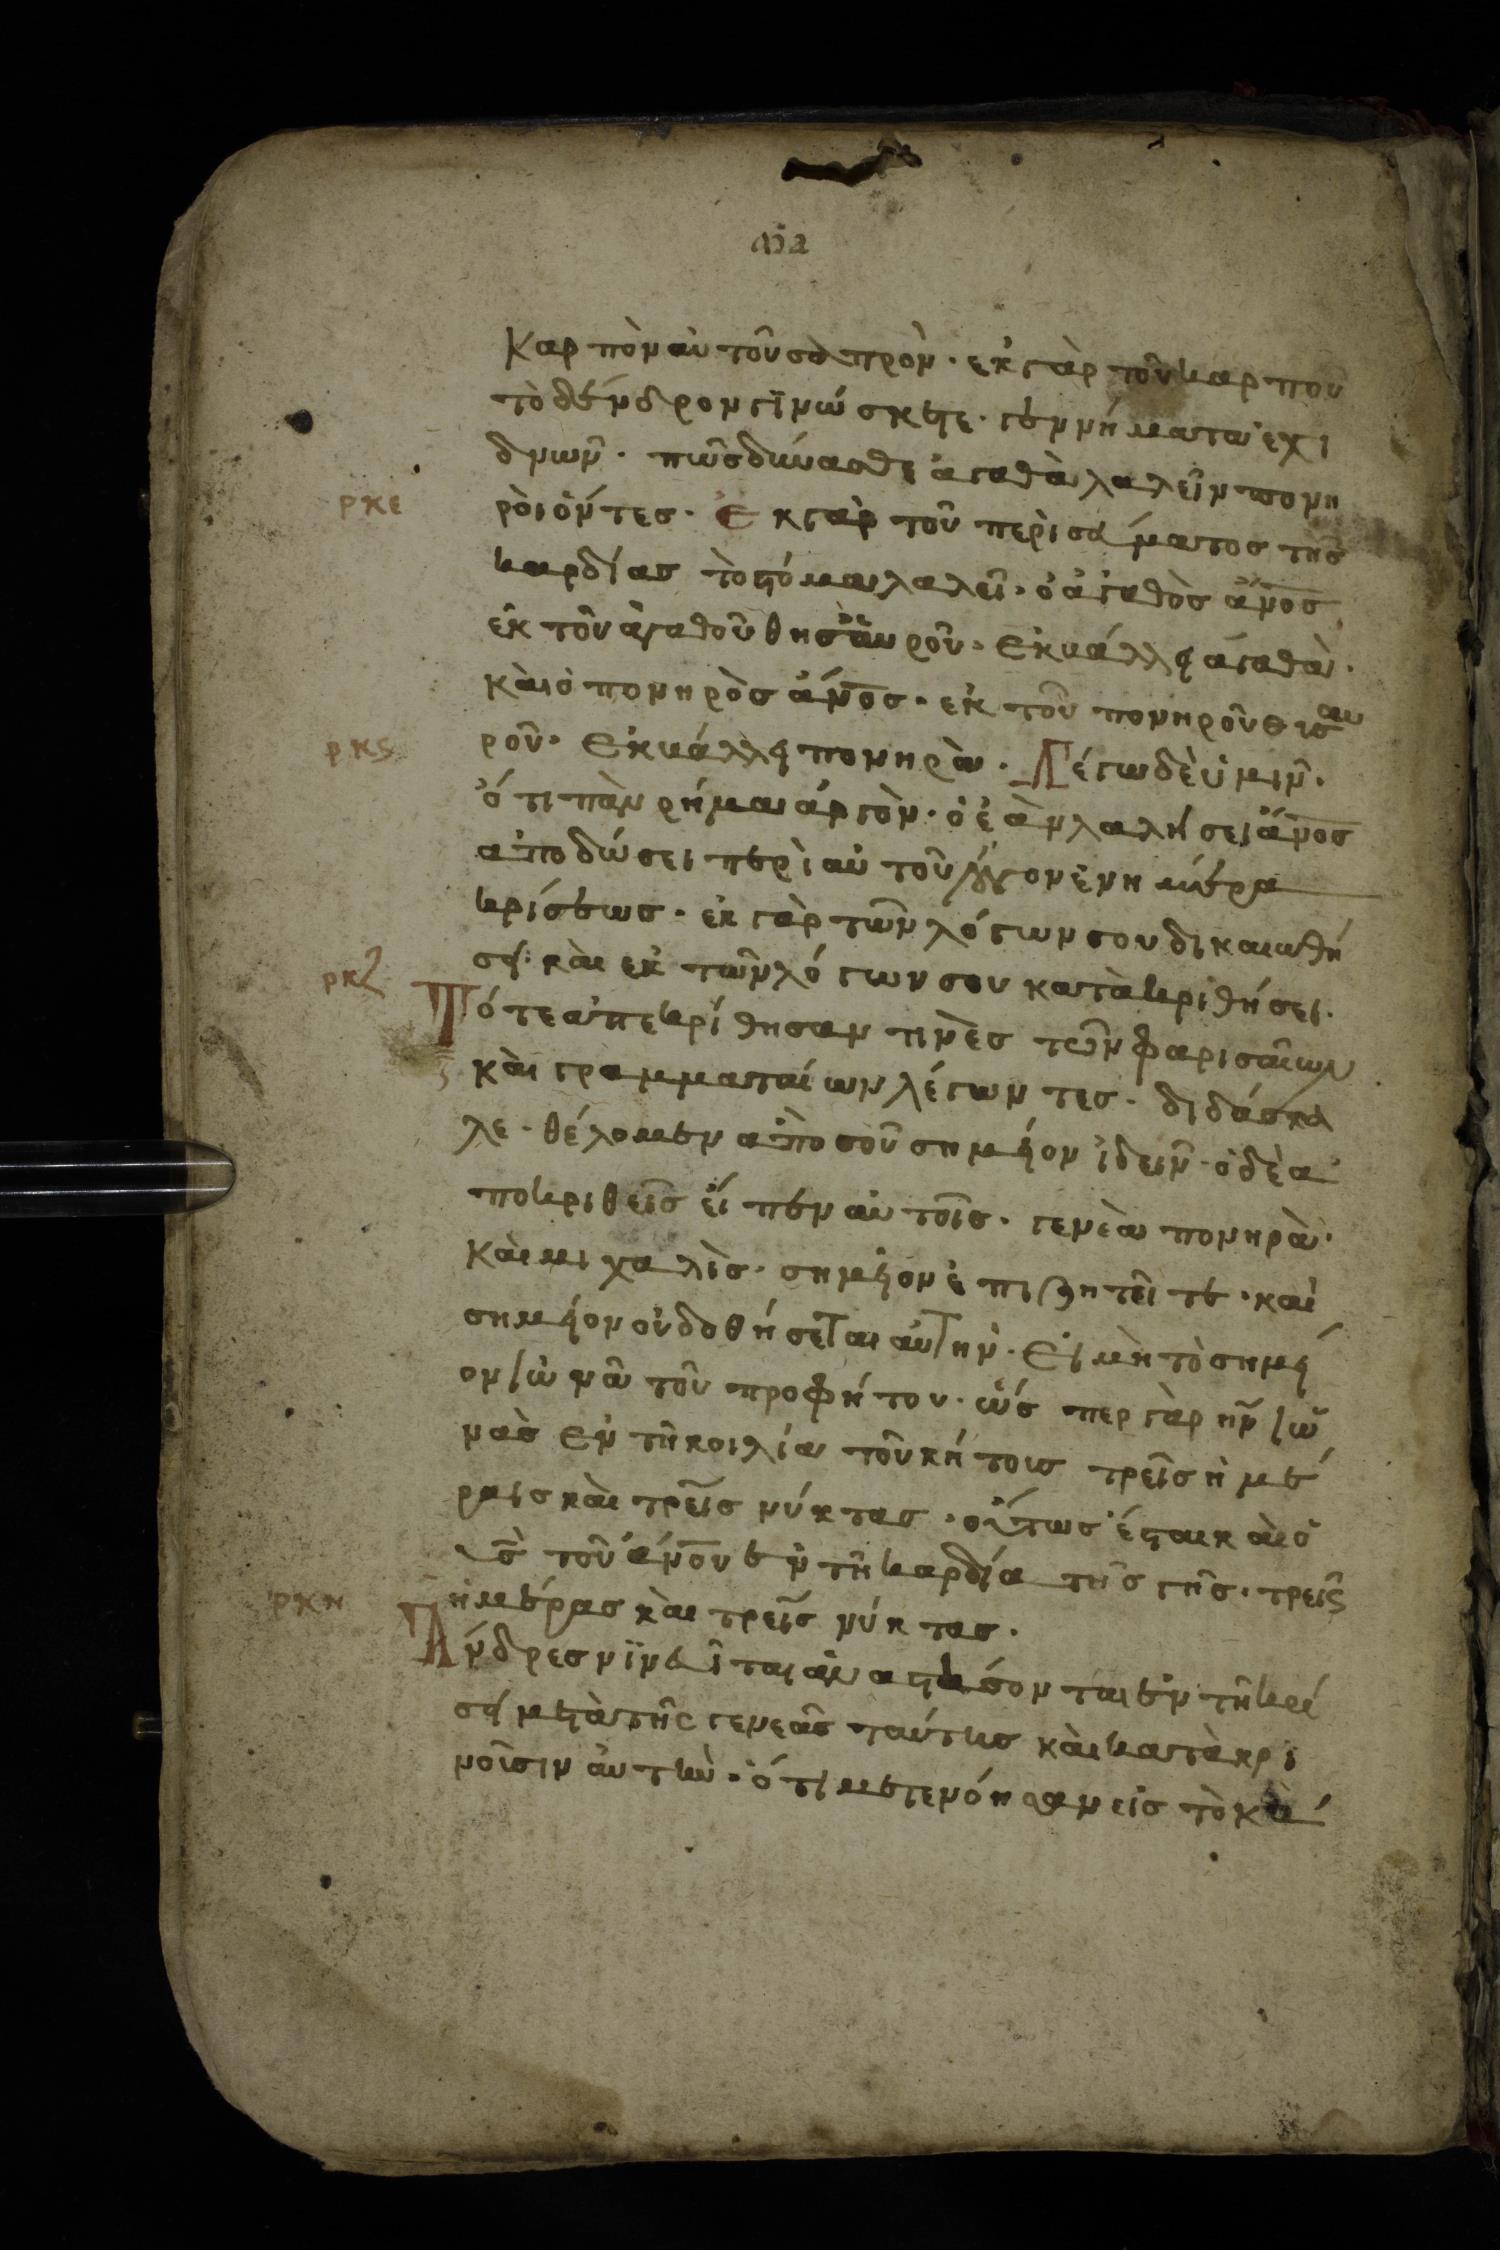 καρπὸν αὐτοῦ σαπρὸν· ἐκ γὰρ τοῦ καρποῦ
τὸ δένδρον γϊνώσκετε· γεννήματα ἐχι
δνῶν· πῶς δύνασθε ἀγαθὰ λαλεῖν πονη
ρκε ροὶ ὄντες· Ἐκ γὰρ τοῦ περισάματος τῆς
καρδίας τὸ στόμα λαλεῖ· ὁ ἀγαθὸς ἄνος
ἐκ τοῦ ἀγαθοῦ θησαυροῦ· ἐκβάλλει ἀγαθὰ·
καὶ ὁ πονηρὸς ἄνος· ἐκ τοῦ πονηροῦ θισαυ
ρκς ροῦ· ἐκβάλλει πονηρὰ· Λέγω δὲ ὑμῖν·
ὅτι πᾶν ρήμα ἀργὸν· ὃ ἐὰν λαλήσει ἄνος
ἀποδώσει περὶ αὐτοῦ ἐν ἡμέρα
κρίσεως· ἐκ γὰρ τῶν λόγων σου δικαιωθή
ρκζ σει· καὶ ἐκ τῶν λόγων σου κατακριθήσει·
Τότε ἀπεκρίθησαν τινὲς τῶν φαρισαίων
καὶ γραμματαίων λέγωντες· διδάσκα
λε· θέλομεν ἀπὸ σοῦ σημεῖον ἰδεῖν· ὁ δὲ ἀ
ποκριθεῖς εἶπεν αὐτοῖς· γενεὰ πονηρὰ·
καὶ μιχαλὶς· σημεῖον ἐπιζητεῖτε· καὶ
σημεῖον οὐ δοθήσεται αὐτὴν· εἰ μὴ τὸ σημεῖ
ον ἰωνᾶ τοῦ προφήτου· ὥσπερ γὰρ ἦν ἰω
νὰς ἐν τῆ κοιλία τοῦ κήτους τρεῖς ἡμέ
ραις καὶ τρεῖς νύκτας· οὕτως ἔσται καὶ ὁ
υς τοῦ ἀνου ἐν τῆ καρδία τῆς γῆς· τρεῖς
ρκη ἡμέρας καὶ τρεῖς νύκτας·
Ἄνδρες νϊνεΐται ἀναστήσονται ἐν τῆ κρί
σει μετὰ τῆς γενεᾶς ταύτης καὶ κατακρι
νοῦσιν αὐτὴν· ὅτι μετενόησαν εἰς τὸ κὰ